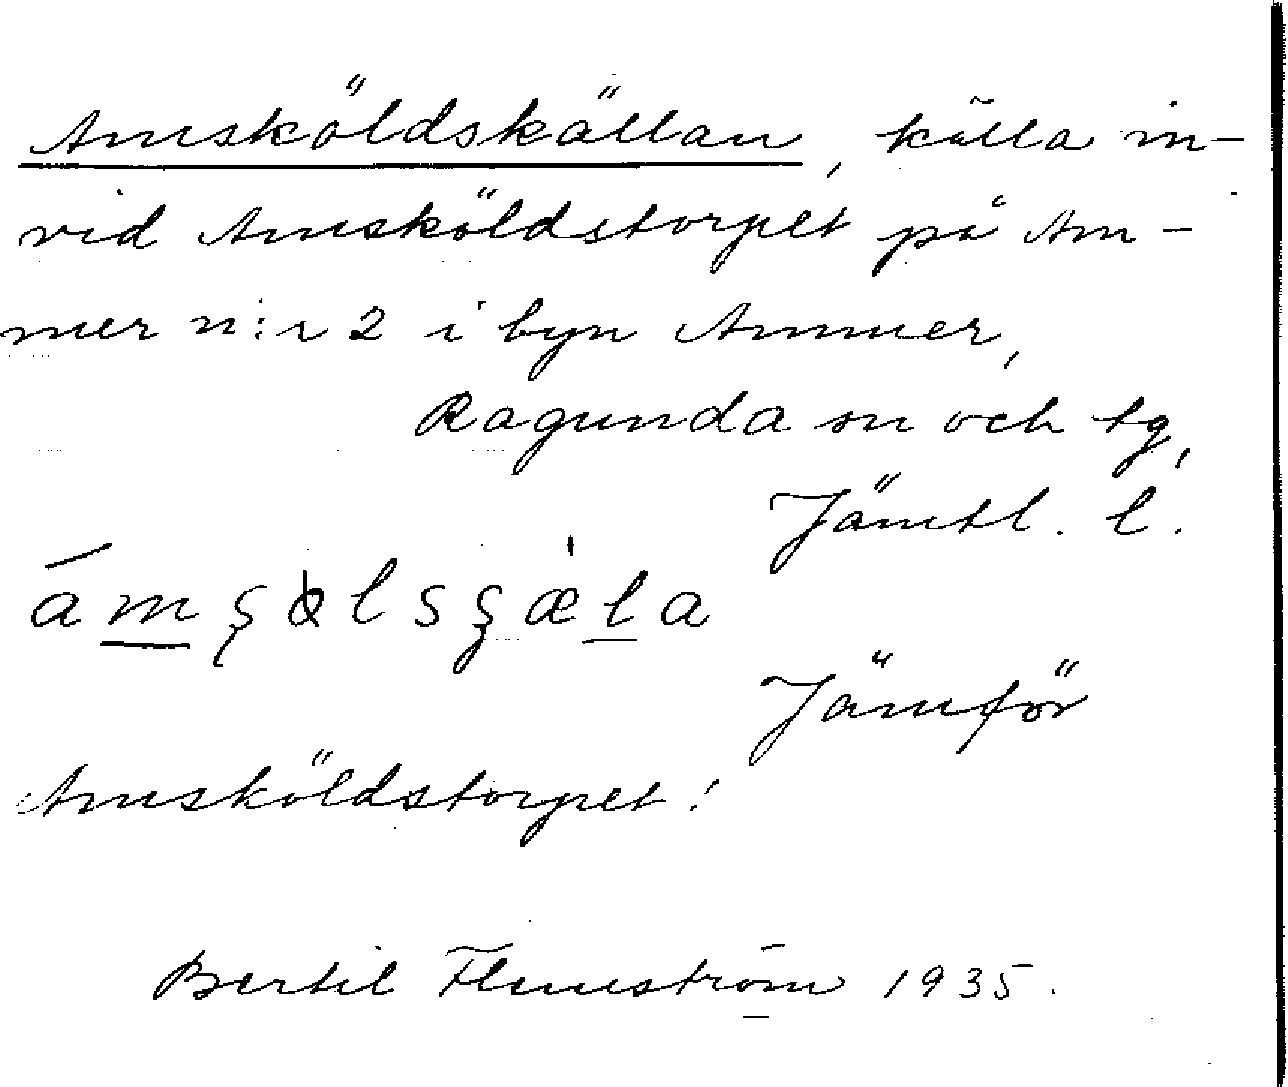 Amsköldskällan, källa in-
vid Amsköldstorpet på Am-
mer n:r 2 i byn Ammer,
Ragunda sn och tg,
Jämtl. l.
Jämför
Amsköldstorpet!
Bertil Flemström 1935.